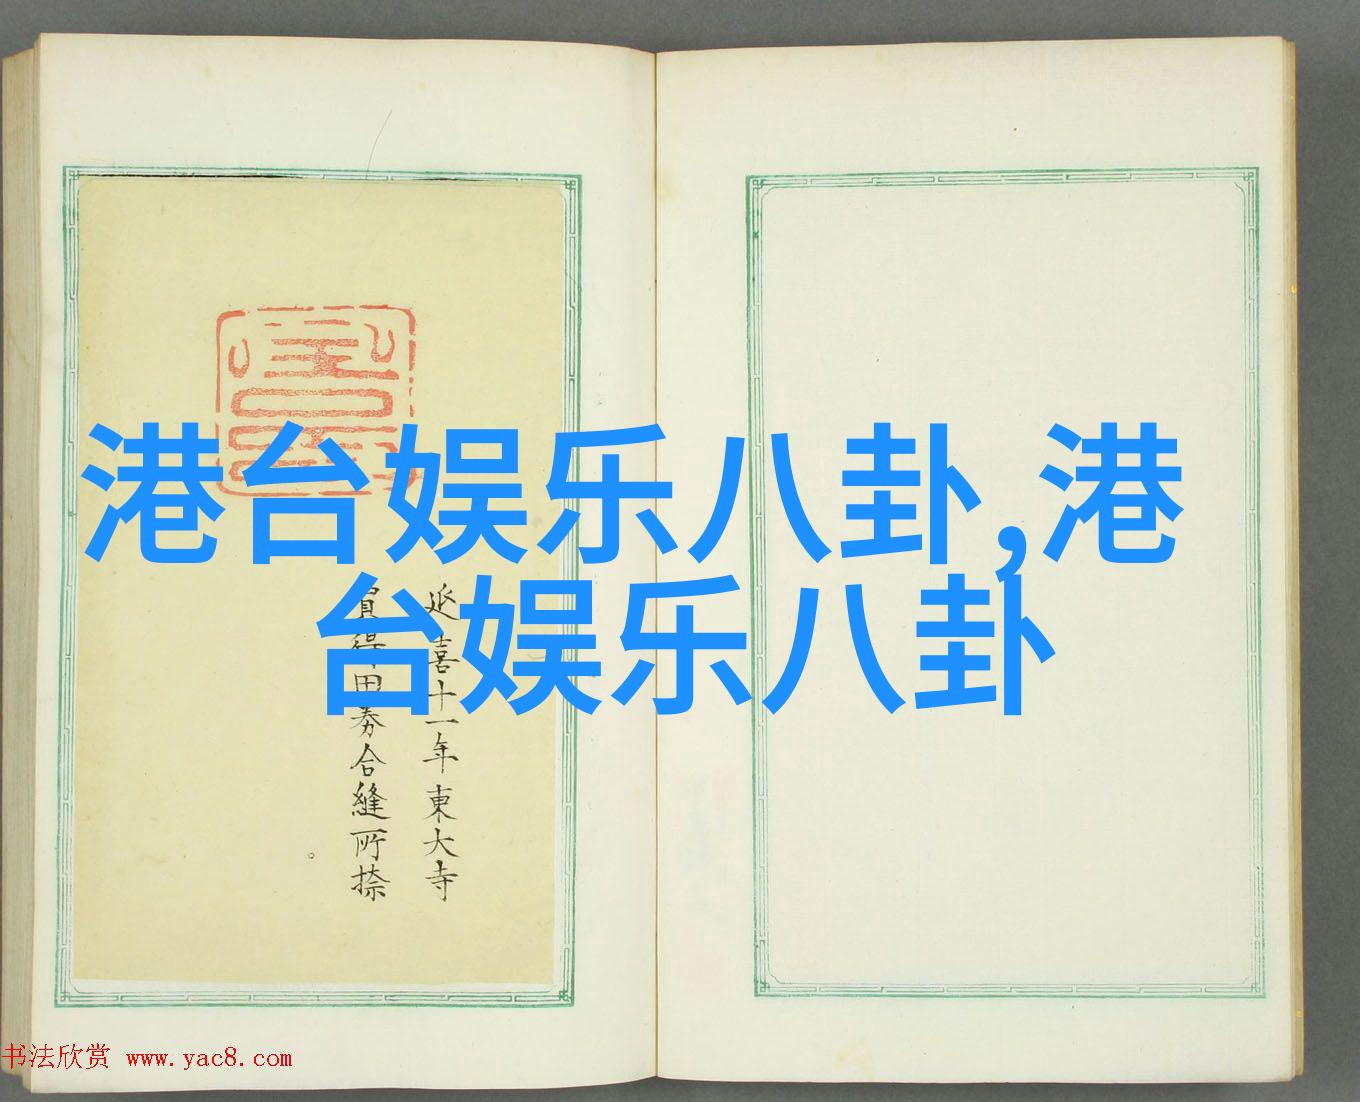 港台娱乐八卦,港
台娱乐八卦
延喜十一年東大寺
買得田券合縫所捺
书法欣赏 www.yac8.com